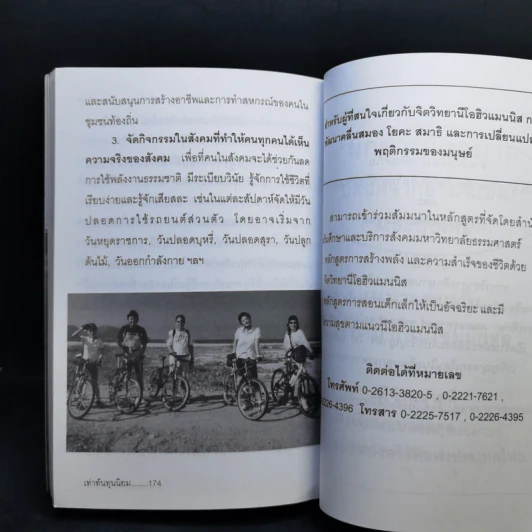 และสนับสนุนการสร้างอาชีพและการทำสหกรณ์ของคนใน
ชุมชนท้องถิ่น
3. จัดกิจกรรมในสังคมที่ทำให้คนทุกคนได้เห็น
ความจริงของสังคม เพื่อที่คนในสังคมจะได้ช่วยกันลด
การใช้พลังงานธรรมชาติ มีระเบียบวินัย รู้จักการใช้ชีวิตที่
เรียบง่ายและรู้จักเสียสละ เช่นในแต่ละสัปดาห์จัดให้มีวัน
ปลอดการใช้รถยนต์ส่วนตัว โดยอาจเริ่มจาก
วันหยุดราชการ, วันปลอดบุหรี่, วันปลอดสุรา, วันปลูก
ต้นไม้, วันออกกำลังกาย ฯลฯ
เท่าทันทุนนิยม........174
สำหรับผู้ที่สนใจเกี่ยวกับจิตวิทยานีโอฮิวแมนนิส
พัฒนาคลื่นสมอง โยคะ สมาธิ และการเปลี่ยนแปล
พฤติกรรมของมนุษย์
สามารถเข้าร่วมสัมมนาในหลักสูตรที่จัดโดยสำนั
ศึกษาและบริการสังคมมหาวิทยาลัยธรรมศาสตร์
หลักสูตรการสร้างพลัง และความสำเร็จของชีวิตด้วย
จิตวิทยานีโอฮิวแมนนิส
หลักสูตรการสอนเด็กเล็กให้เป็นอัจฉริยะ และมี
ความสุขตามแนวนีโอฮิวแมนนิส
ติดต่อได้ที่หมายเลข
โทรศัพท์ 0-2613-3820-5 , 0-2221-7621 ,
2226-4396 โทรสาร 0-2225-7517 , 0-2226-4395